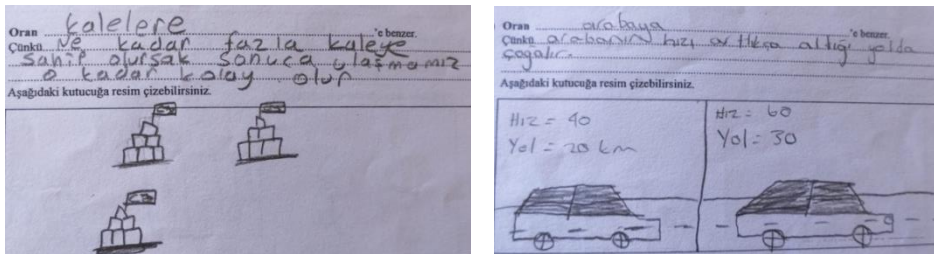 Oran kalelere 'e benzer.
Çünkü Ne kadar fazla kaleye
sahip olursak sonuca ulaşmamız
o kadar kolay olur
Aşağıdaki kutucuğa resim çizebilirsiniz.
Oran arabaya 'e benzer.
Çünkü arabanın hızı arttıkça aldığı yolda
çoğalır.
Aşağıdaki kutucuğa resim çizebilirsiniz.
Hız = 40
Yol = 20 km
Hız = 60
Yol = 30